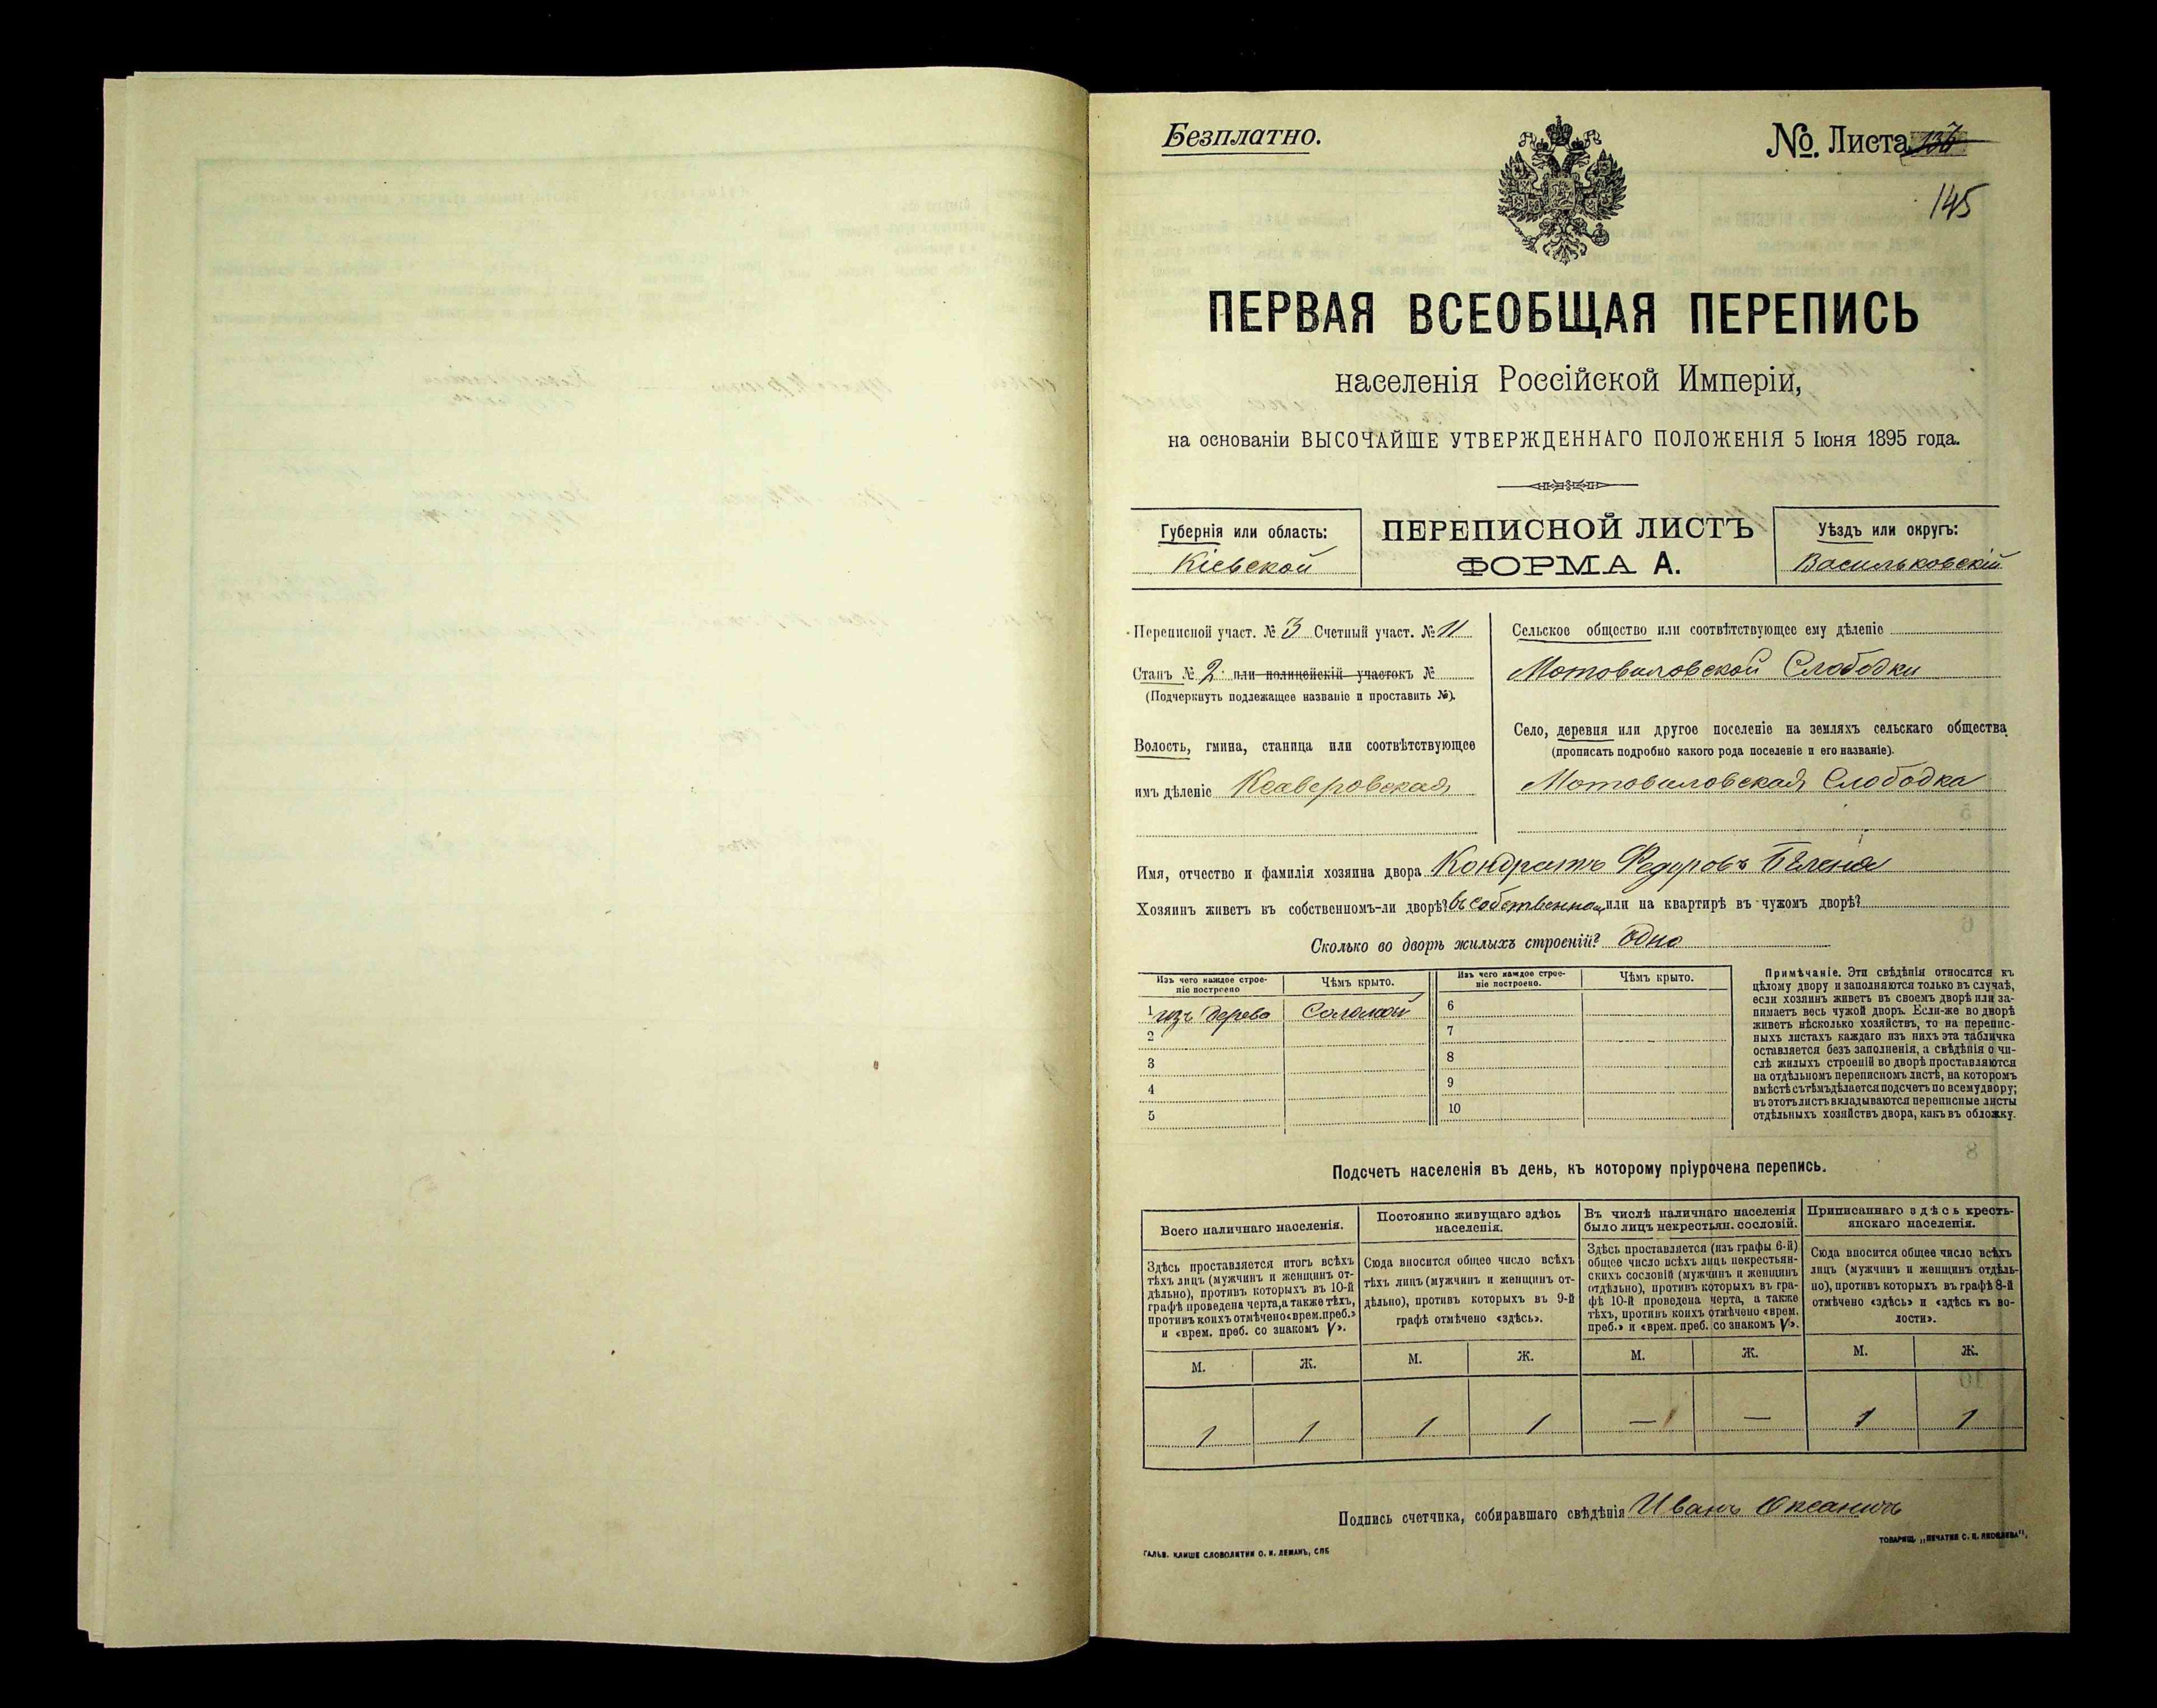 Безплатно.
№. Листа 136
145
ПЕРВАЯ ВСЕОБЩАЯ ПЕРЕПИСЬ
населенія Россійской Имперіи,
на основаніи ВЫСОЧАЙШЕ УТВЕРЖДЕННАГО ПОЛОЖЕНІЯ 5 Іюня 1895 года.
Губернія или область:
Кіевской
ПЕРЕПИСНОЙ ЛИСТЪ
ФОРМА А.
Уѣздъ или округъ:
Васильковскій
Переписной участ. № 3 Счетный участ. № 11
Станъ № 2 или полицейскій участокъ №
(Подчеркнуть подлежащее названіе и проставить №).
Волость, гмина, станица или соотвѣтствующее
имъ дѣленіе Ксаверовская
Сельское общество или соотвѣтствующее ему дѣленіе
Мотовиловской Слободки
Село, деревня или другое поселеніе на земляхъ сельскаго общества
(прописать подробно какого рода поселеніе и его названіе).
Мотовиловская Слободка
Имя, отчество и фамилія хозяина двора Кондратъ Федоровъ
Хозяинъ живетъ въ собственномъ-ли дворѣ? въ собственном или на квартирѣ въ чужомъ дворѣ?
Сколько во дворѣ жилыхъ строеній? одно
Изъ чего каждое строе-
ніе построено
Чѣмъ крыто.
Изъ чего каждое строе-
ніе построено.
Чѣмъ крыто.
1 изъ дерева Соломой
2
3
4
5
6
7
8
9
10
Примѣчаніе. Эти свѣдѣнія относятся къ
цѣлому двору и заполняются только въ случаѣ,
если хозяинъ живетъ въ своемъ дворѣ или за-
нимаетъ весь чужой дворъ. Если-же во дворѣ
живетъ нѣсколько хозяйствъ, то на перепис-
ныхъ листахъ каждаго изъ нихъ эта табличка
оставляется безъ заполненія, а свѣдѣнія о чи-
слѣ жилыхъ строеній во дворѣ проставляются
на отдѣльномъ переписномъ листѣ, на которомъ
вмѣстѣ съ тѣмъ дѣлается подсчетъ по всему двору;
въ этотъ листъ вкладываются переписные листы
отдѣльныхъ хозяйствъ двора, какъ въ обложку.
Подсчетъ населенія въ день, къ которому пріурочена перепись.
Всего наличнаго населенія.
Здѣсь проставляется итогъ всѣхъ
тѣхъ лицъ (мужчинъ и женщинъ от-
дѣльно), противъ которыхъ въ 10-й
графѣ проведена черта, а также тѣхъ,
противъ коихъ отмѣчено «врем. преб.»
и «врем. преб. со знакомъ V».
М. Ж.
1 1
Постоянно живущаго здѣсь
населенія.
Сюда вносится общее число всѣхъ
тѣхъ лицъ (мужчинъ и женщинъ от-
дѣльно), противъ которыхъ въ 9-й
графѣ отмѣчено «здѣсь».
М. Ж.
1 1
Въ числѣ наличнаго населенія
было лицъ некрестьян. сословій.
Здѣсь проставляется (изъ графы 6-й)
общее число всѣхъ лицъ некрестьян-
скихъ сословій (мужчинъ и женщинъ
отдѣльно), противъ которыхъ въ гра-
фѣ 10-й проведена черта, а также
тѣхъ, противъ коихъ отмѣчено «врем.
преб.» и «врем. преб. со знакомъ V».
М. Ж.
— —
Приписаннаго здѣсь кресть-
янскаго населенія.
Сюда вносится общее число всѣхъ
лицъ (мужчинъ и женщинъ отдѣль-
но), противъ которыхъ въ графѣ 8-й
отмѣчено «здѣсь» и «здѣсь къ во-
лости».
М. Ж.
1 1
Подпись счетчика, собиравшаго свѣдѣнія Иванъ
ГАЛЬВ. КЛИШЕ СЛОВОЛИТНИ О. И. ЛЕМАНЪ, СПБ
ТОВАРИЩ. „ПЕЧАТНЯ С. П. ЯКОВЛЕВА".